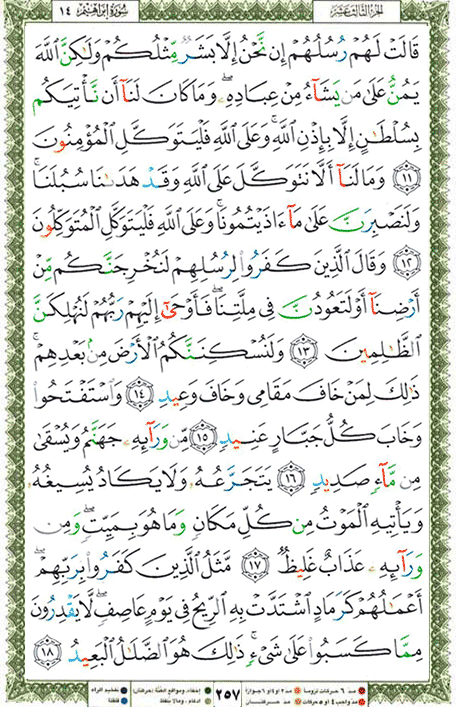 سورة إبراهيم ١٤
الجزء الثالث عشر
قَالَتْ لَهُمْ رُسُلُهُمْ إِن نَّحْنُ إِلَّا بَشَرٌ مِّثْلُكُمْ وَلَٰكِنَّ ٱللَّهَ
يَمُنُّ عَلَىٰ مَن يَشَآءُ مِنْ عِبَادِهِۦ ۖ وَمَا كَانَ لَنَآ أَن نَّأْتِيَكُم
بِسُلْطَٰنٍ إِلَّا بِإِذْنِ ٱللَّهِ ۚ وَعَلَى ٱللَّهِ فَلْيَتَوَكَّلِ ٱلْمُؤْمِنُونَ
١١ وَمَا لَنَآ أَلَّا نَتَوَكَّلَ عَلَى ٱللَّهِ وَقَدْ هَدَىٰنَا سُبُلَنَا ۚ
وَلَنَصْبِرَنَّ عَلَىٰ مَآ ءَاذَيْتُمُونَا ۚ وَعَلَى ٱللَّهِ فَلْيَتَوَكَّلِ ٱلْمُتَوَكِّلُونَ
١٢ وَقَالَ ٱلَّذِينَ كَفَرُوا۟ لِرُسُلِهِمْ لَنُخْرِجَنَّكُم مِّنْ
أَرْضِنَآ أَوْ لَتَعُودُنَّ فِى مِلَّتِنَا ۖ فَأَوْحَىٰٓ إِلَيْهِمْ رَبُّهُمْ لَنُهْلِكَنَّ
ٱلظَّٰلِمِينَ ١٣ وَلَنُسْكِنَنَّكُمُ ٱلْأَرْضَ مِنۢ بَعْدِهِمْ ۚ
ذَٰلِكَ لِمَنْ خَافَ مَقَامِى وَخَافَ وَعِيدِ ١٤ وَٱسْتَفْتَحُوا۟
وَخَابَ كُلُّ جَبَّارٍ عَنِيدٍ ١٥ مِّن وَرَآئِهِۦ جَهَنَّمُ وَيُسْقَىٰ
مِن مَّآءٍ صَدِيدٍ ١٦ يَتَجَرَّعُهُۥ وَلَا يَكَادُ يُسِيغُهُۥ
وَيَأْتِيهِ ٱلْمَوْتُ مِن كُلِّ مَكَانٍ وَمَا هُوَ بِمَيِّتٍ ۖ وَمِن
وَرَآئِهِۦ عَذَابٌ غَلِيظٌ ١٧ مَّثَلُ ٱلَّذِينَ كَفَرُوا۟ بِرَبِّهِمْ ۖ
أَعْمَٰلُهُمْ كَرَمَادٍ ٱشْتَدَّتْ بِهِ ٱلرِّيحُ فِى يَوْمٍ عَاصِفٍ ۖ لَّا يَقْدِرُونَ
مِمَّا كَسَبُوا۟ عَلَىٰ شَىْءٍ ۚ ذَٰلِكَ هُوَ ٱلضَّلَٰلُ ٱلْبَعِيدُ ١٨
مد ٦ حركات لزوماً مد ٢ أو ٤ أو ٦ جوازاً
مد واجب ٤ أو ٥ حركات مد حركتان
٢٥٧
إخفاء، ومواقع الغنة (حركتان) تفخيم الراء
إدغام، وما لا يلفظ قلقلة